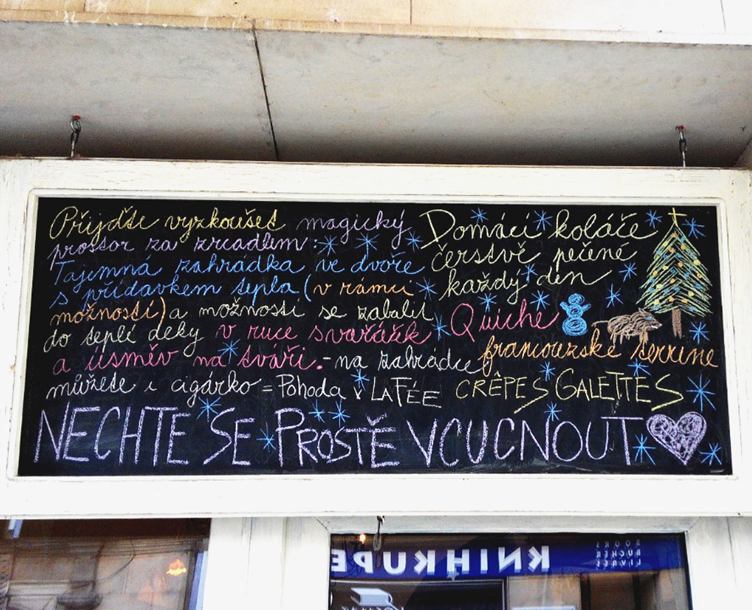 Přijďte vyzkoušet magický
prostor za zrcadlem:
Tajemná zahrádka ve dvoře
s přídavkem tepla (v rámci
možností) a možností se zabalit
do teplé deky v ruce svařáček
a úsměv na tváři. - na zahrádce
můžete i cigárko = Pohoda v LA FÉE
Domácí koláče
čerstvě pečené
každý den
Quiche
francouzské terrine
CRÊPES GALETTES
NECHTE SE PROSTĚ VCUCNOUT
KNIHKUPE
BOOKS
BÜCHER
LIVRES